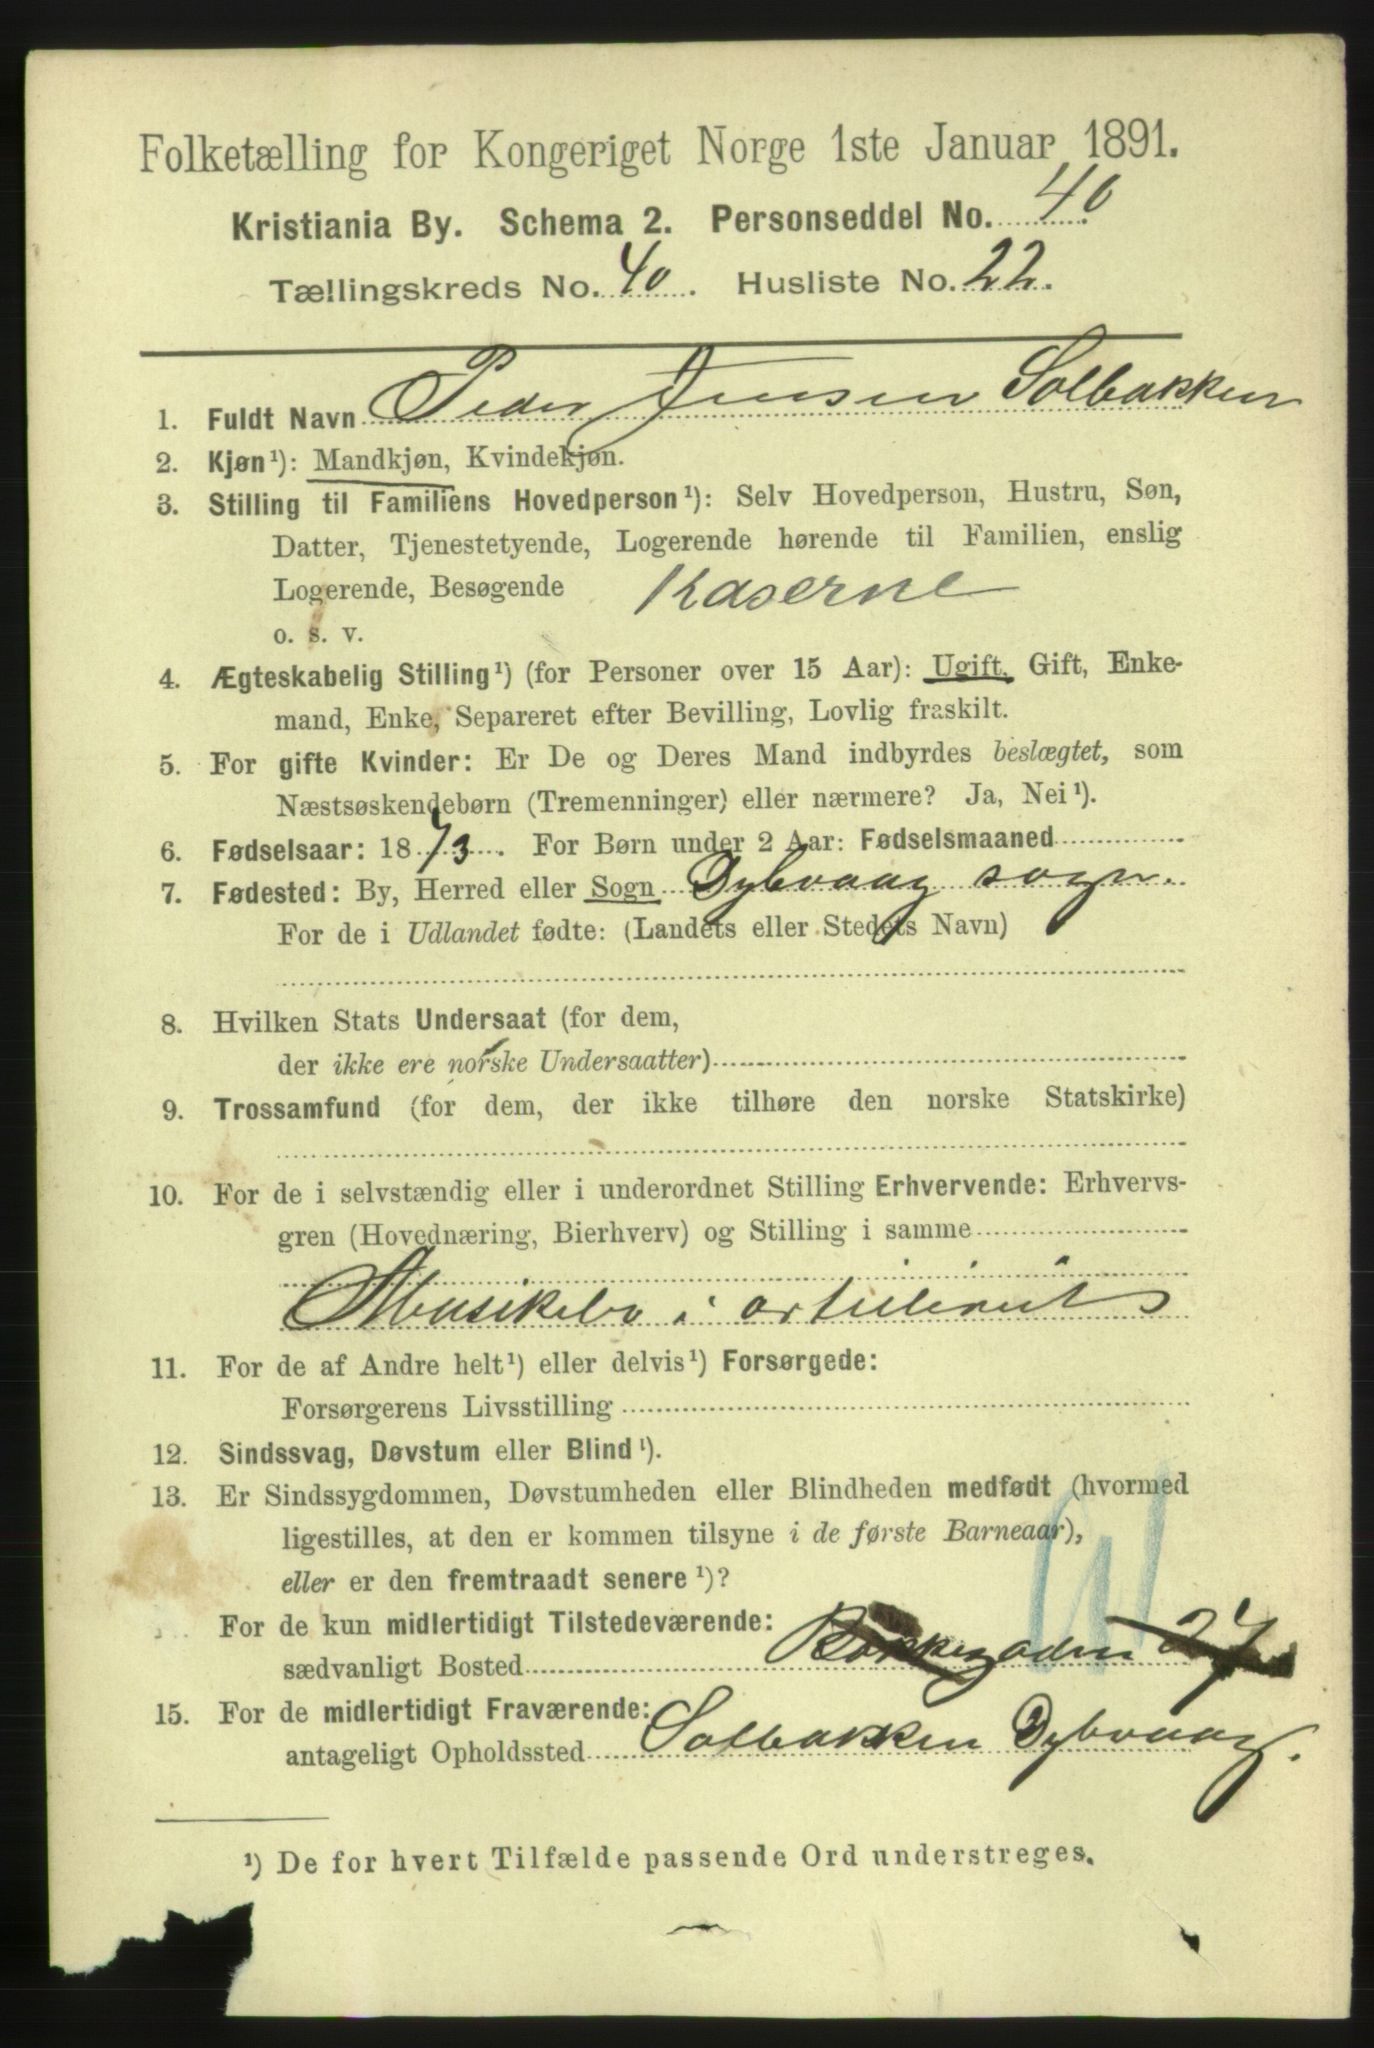 Folketælling for Kongeriget Norge 1ste Januar 1891.
Kristiania By. Schema 2. Personseddel No. 40
Tællingskreds No. 40. Husliste No. 22.
1. Fuldt Navn Peder Jensen Solbakken
2. Kjøn¹): Mandkjøn, Kvindekjøn.
3. Stilling til Familiens Hovedperson¹): Selv Hovedperson, Hustru, Søn,
Datter, Tjenestetyende, Logerende hørende til Familien, enslig
Logerende, Besøgende Kaserne
o. s. v.
4. Ægteskabelig Stilling¹) (for Personer over 15 Aar): Ugift, Gift, Enke-
mand, Enke, Separeret efter Bevilling, Lovlig fraskilt.
5. For gifte Kvinder: Er De og Deres Mand indbyrdes beslægtet, som
Næstsøskendebørn (Tremenninger) eller nærmere? Ja, Nei¹).
6. Fødselsaar: 1873. For Børn under 2 Aar: Fødselsmaaned
7. Fødested: By, Herred eller Sogn Dybvaag sogn.
For de i Udlandet fødte: (Landets eller Stedets Navn)
8. Hvilken Stats Undersaat (for dem,
der ikke ere norske Undersaatter)
9. Trossamfund (for dem, der ikke tilhøre den norske Statskirke)
10. For de i selvstændig eller i underordnet Stilling Erhvervende: Erhvervs-
gren (Hovednæring, Bierhverv) og Stilling i samme
Musikelv i
11. For de af Andre helt¹) eller delvis¹) Forsørgede:
Forsørgerens Livsstilling
12. Sindssvag, Døvstum eller Blind¹).
13. Er Sindssygdommen, Døvstumheden eller Blindheden medfødt (hvormed
ligestilles, at den er kommen tilsyne i de første Barneaar),
eller er den fremtraadt senere¹)?
For de kun midlertidigt Tilstedeværende:
sædvanligt Bosted 27
15. For de midlertidigt Fraværende:
antageligt Opholdssted Solbakken Dybvaag.
¹) De for hvert Tilfælde passende Ord understreges.